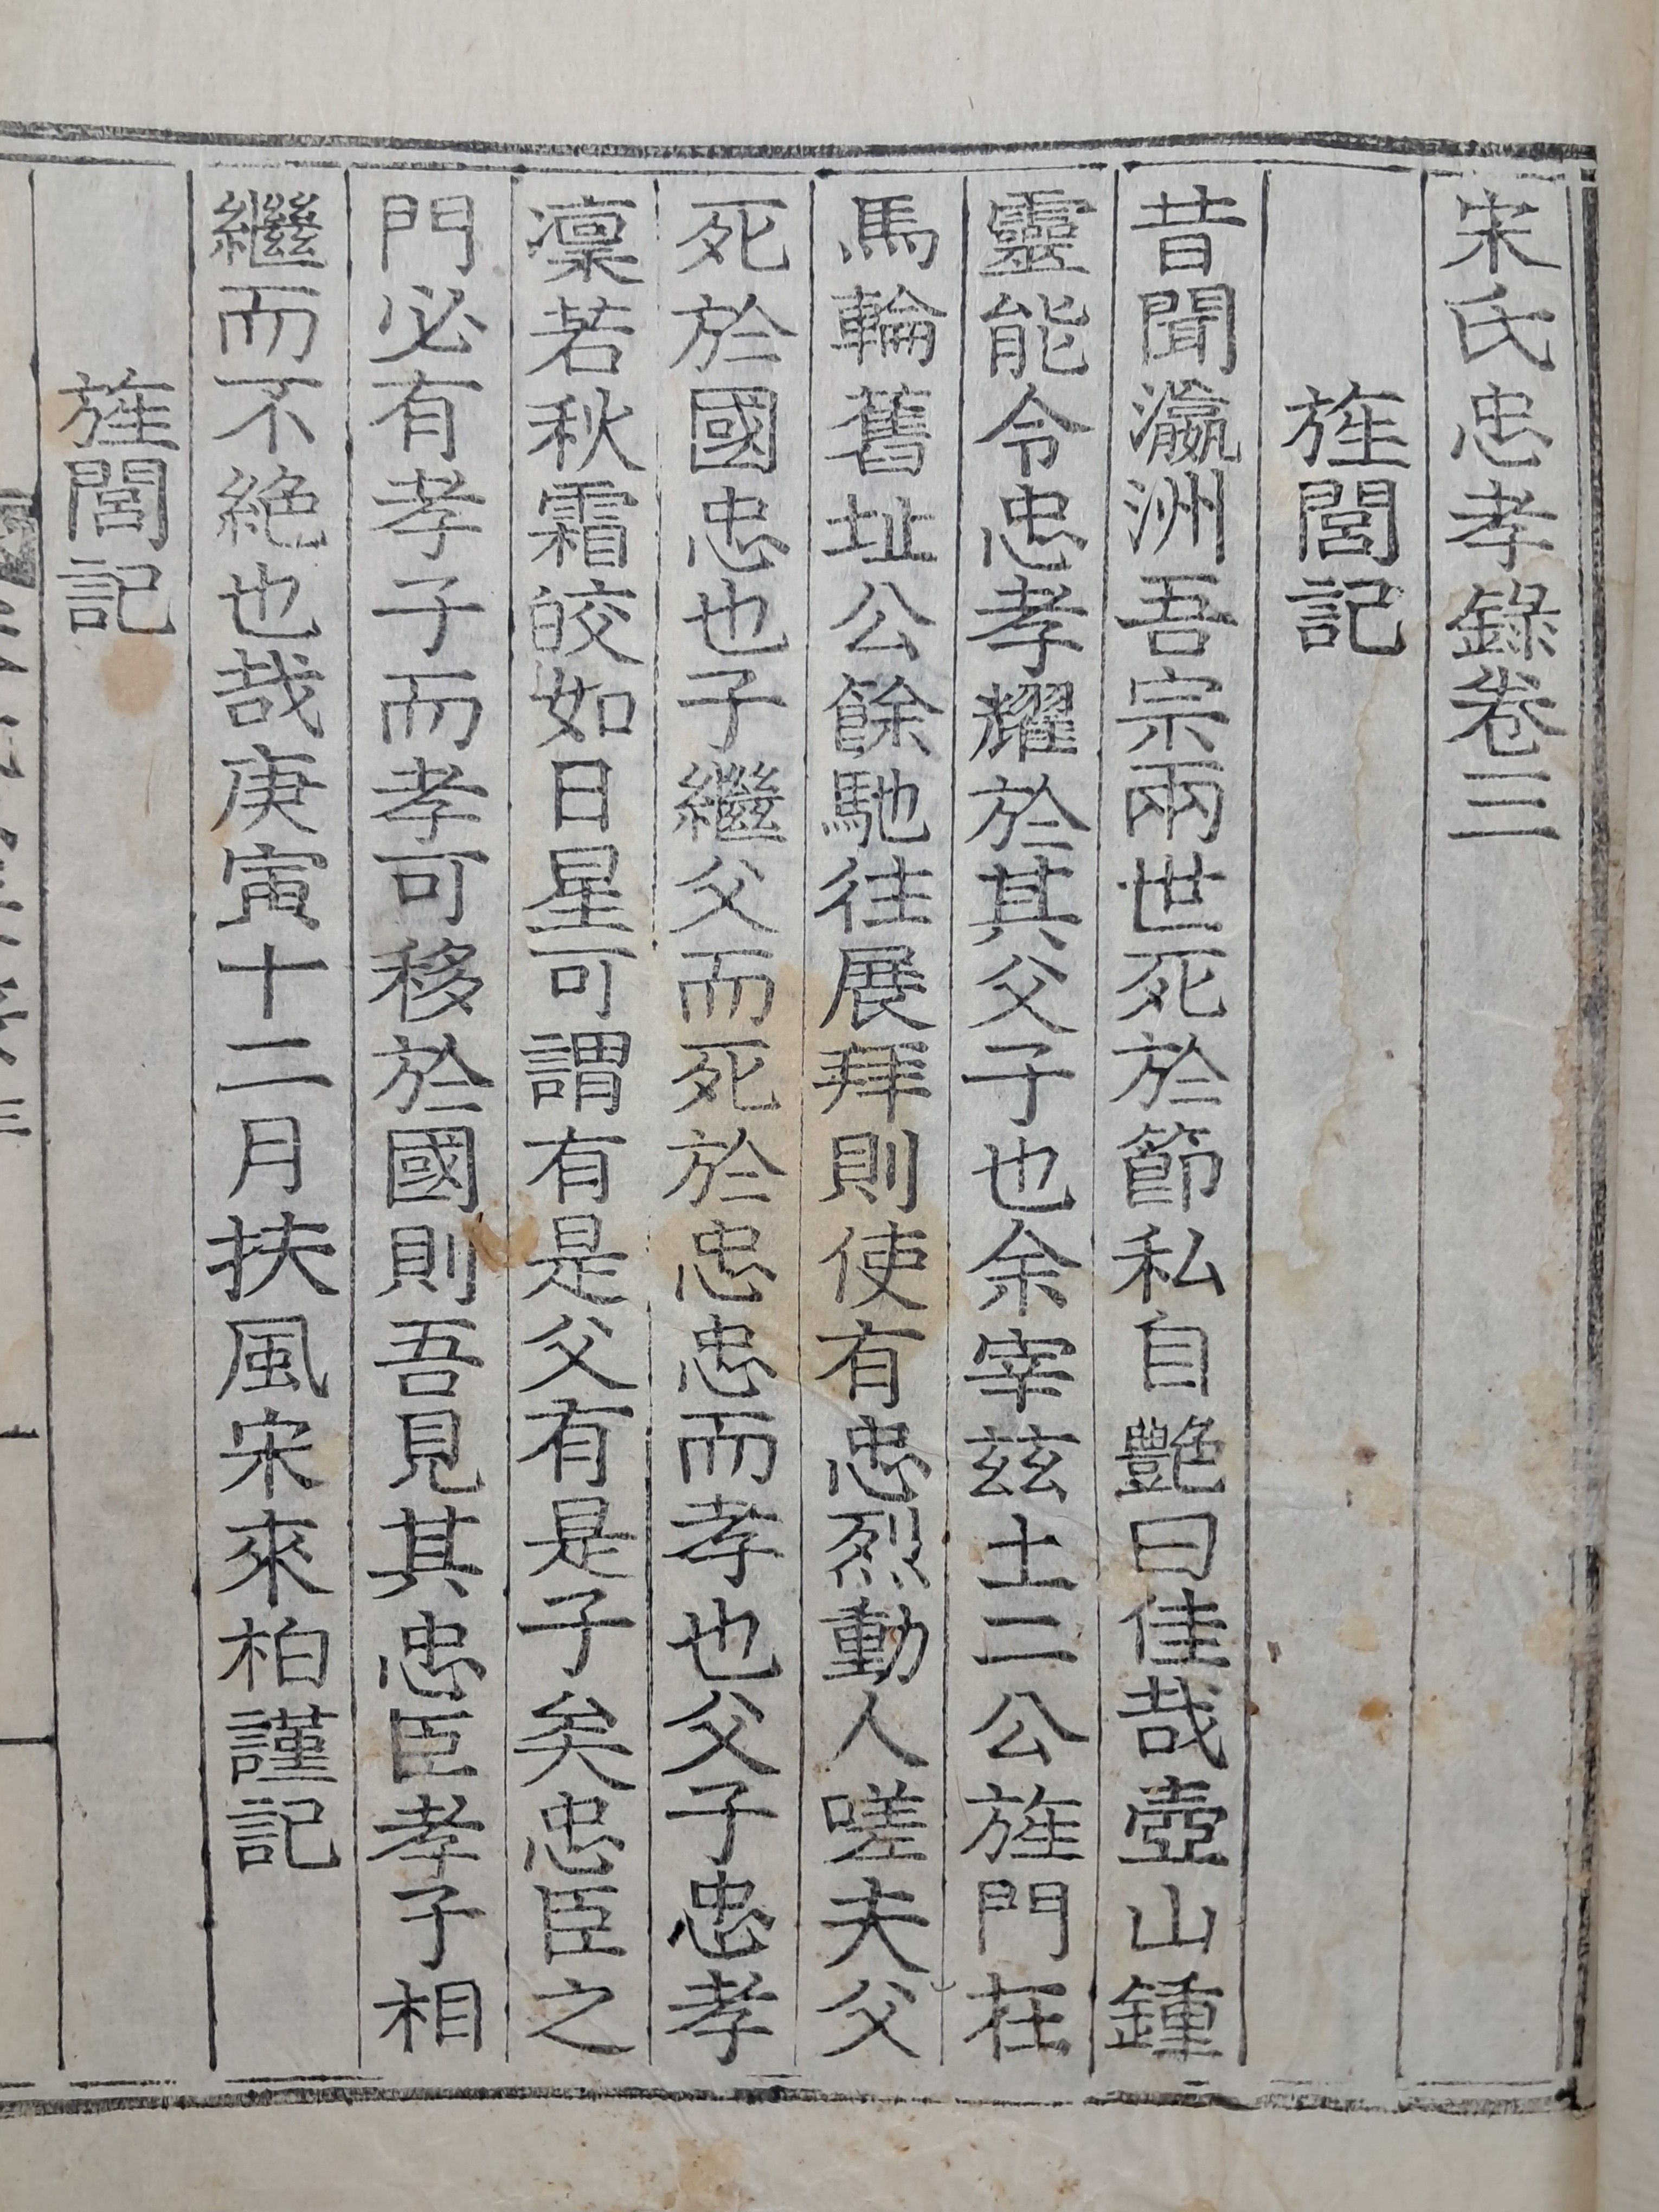 宋氏忠孝錄卷三
旌閭記
昔聞瀛洲吾宗兩世死於節私自艶曰佳哉壺山鍾
靈能令忠孝耀於其父子也余宰玆土二公旌門在
馬輪舊址公餘馳往展拜則使有忠烈動人嗟夫父
死於國忠也子繼父而死於忠忠而孝也父子忠孝
凜若秋霜皎如日星可謂有是父有是子矣忠臣之
門必有孝子而孝可移於國則吾見其忠臣孝子相
繼而不絶也哉庚寅十二月扶風宋來柏謹記
旌閭記